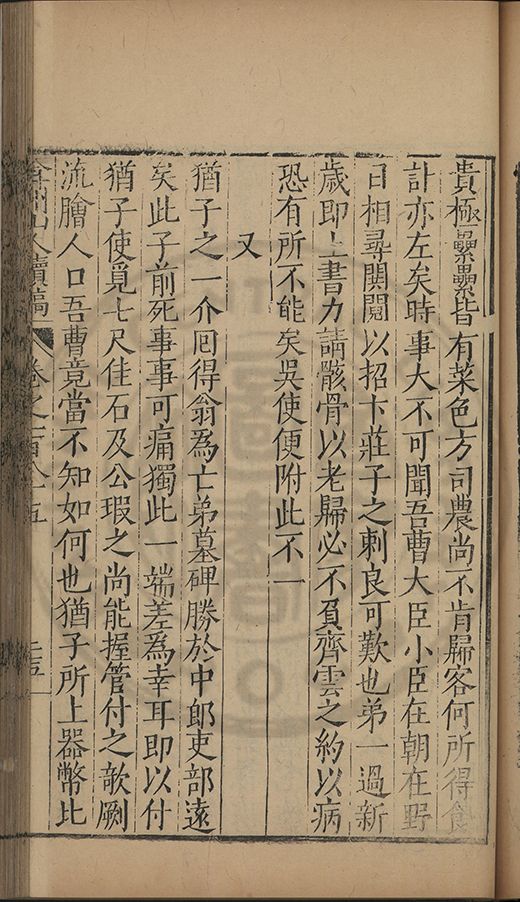 貴極纍纍皆有菜色方司農尚不肯歸客何所得食
計亦左矣時事大不可聞吾曹大臣小臣在朝在野
日相尋鬭鬩以招卞莊子之刺良可歎也弟一過新
歲即上書力請骸骨以老歸必不負齊雲之約以病
恐有所不能矣吳使便附此不一
又
猶子之一介囘得翁為亡弟墓碑勝於中郎吏部遠
矣此子前死事事可痛獨此一端差為幸耳即以付
猶子使覓七尺佳石及公瑕之尚能握管付之欹劂
流膾人口吾曹竟當不知如何也猶子所上器幣比
弇州山人續稿 卷之一百八十五